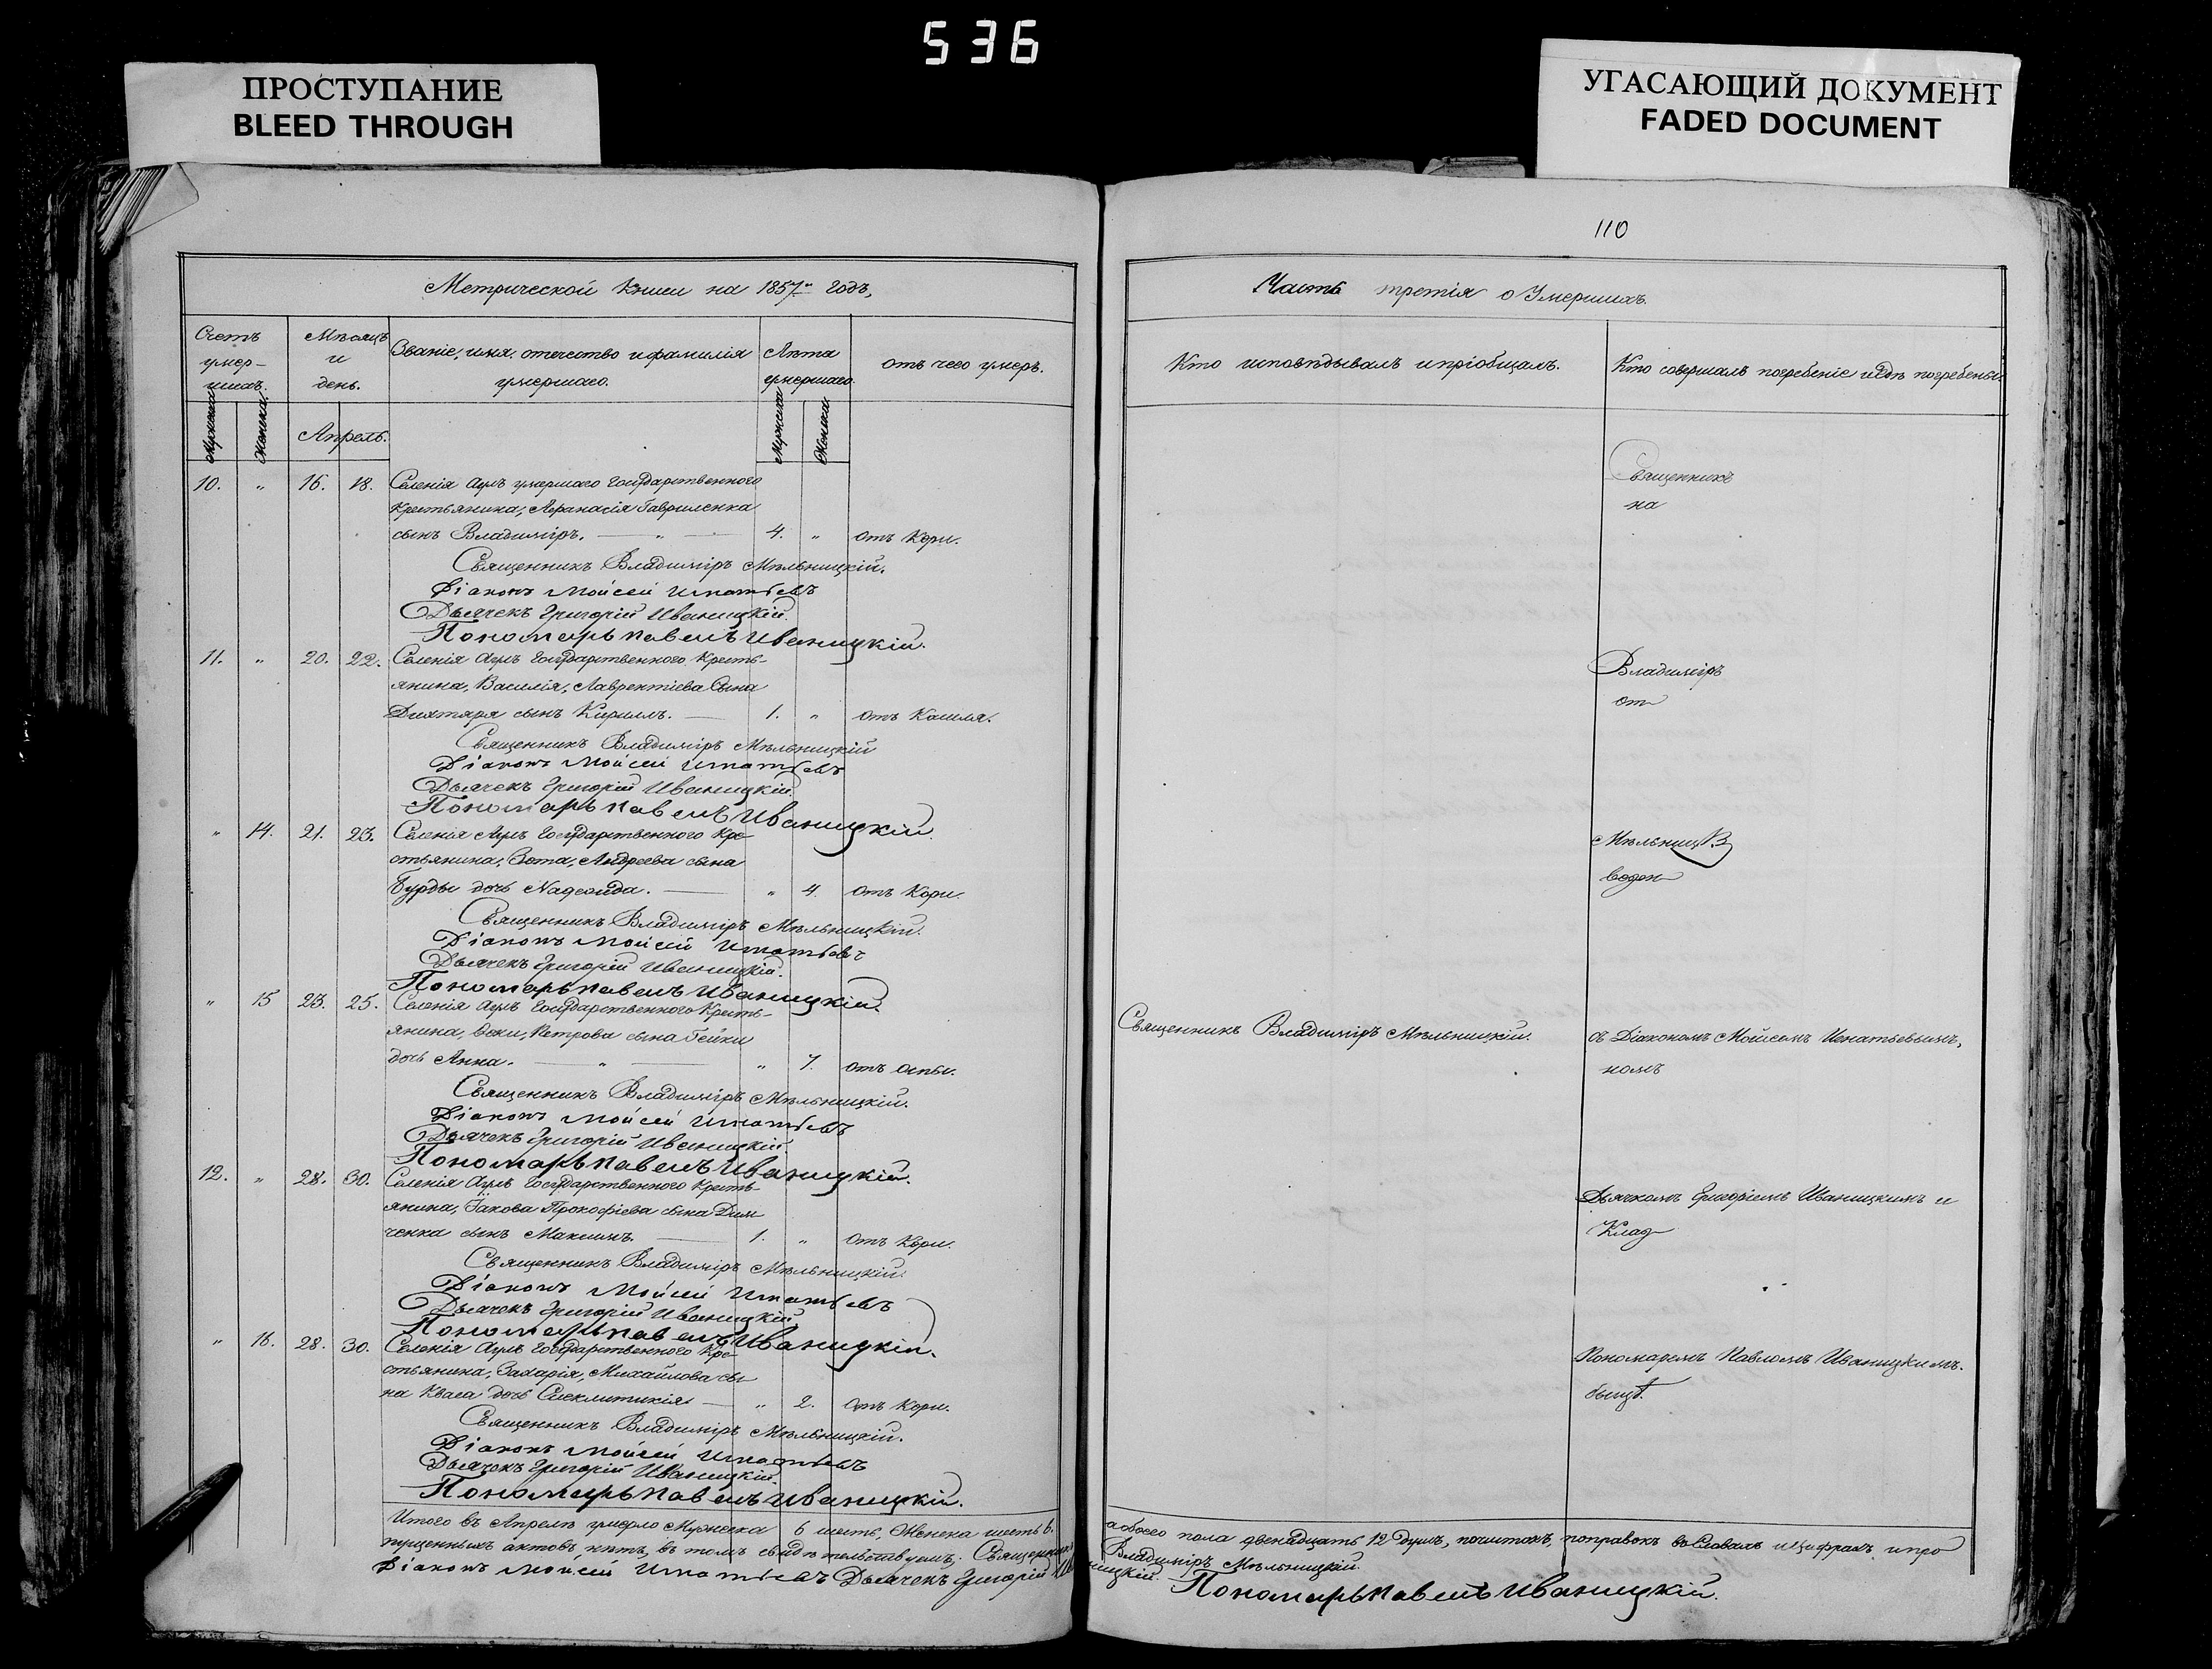 536
ПРОСТУПАНИЕ
BLEED THROUGH
УГАСАЮЩИЙ ДОКУМЕНТ
FADED DOCUMENT
Метрической Книги на 1857й годъ,
Счетъ
умер-
шихъ.
Мужска
Женска
Мѣсяцъ
и
день.
Апрель.
Званіе, имя, отечество и фамилія
умершаго.
Лѣта
умершаго.
Мужска
Женска
отъ чего умеръ.
10. " 16. 18. Селенія Аулъ умершаго Государственного
крестьянина, Афанасія Гавриленка
сынъ Владиміръ. — " — 4. " отъ Кори.
Священникъ Владиміръ Мѣльницкій.
Діаконъ Мойсей Игнатьевъ
Дьячекъ Григорій Иваницкій.
Пономарь Павелъ Иваницкій.
11. " 20. 22. Селенія Аулъ Государственного Кресть-
янина, Василія, Лаврентіева Сына
Дихтяря сынъ Кирилъ. — 1. " отъ Кашля.
Священникъ Владиміръ Мѣльницкій
Діаконъ Мойсей Игнатьевъ
Дьячекъ Григорій Иваницкій.
Пономарь Павелъ Иваницкій.
" 14. 21. 23. Селенія Аулъ Государственного Кре-
стьянина, Зота, Андреева сына
Бурды дочь Надежда. — " 4. отъ Кори.
Священникъ Владиміръ Мѣльницкій.
Діаконъ Мойсей Игнатьевъ
Дьячекъ Григорій Иваницкій.
Пономарь Павелъ Иваницкій.
" 15 23. 25. Селенія Аулъ Государственного Кресть-
янина, Петрова сына Гейки
дочь Анна. — " — " 7. отъ оспы.
Священникъ Владиміръ Мѣльницкій.
Діаконъ Мойсей Игнатьевъ
Дьячекъ Григорій Иваницкій
Пономарь Павелъ Иваницкій.
12. " 28. 30. Селенія Аулъ Государственного Кресть-
янина, Іакова Прокофіева сына Дим
ченка сынъ Максимъ. — 1. " отъ Кори.
Священникъ Владиміръ Мѣльницкій.
Діаконъ Мойсей Игнатьевъ
Дьячекъ Григорій Иваницкій
Пономарь Павелъ Иваницкій.
" 16. 28. 30. Селенія Аулъ Государственного Кре-
стьянина, Захарія, Михайлова сы-
на Кваса дочь Сиклитикія — " 2. отъ Кори.
Священникъ Владиміръ Мѣльницкій.
Діаконъ Мойсей Игнатьевъ
Дьячекъ Григорій Иваницкій.
Пономарь Павелъ Иваницкій.
Итого въ Апрелѣ умерло Мужеска 6 шесть, Женска шесть 6.
пущенныхъ актовъ нѣтъ, въ томъ свидѣтельствуемъ. Священникъ
Діаконъ Мойсей Игнатьевъ Дьячекъ Григорій
110
Часть третія о Умершихъ.
Кто исповѣдывалъ и пріобщалъ.
Кто совершалъ погребеніе и гдѣ погребены.
Священникъ
на
Владиміръ
от
Мѣльниц
веден
Священникъ Владиміръ Мѣльницкій.
съ Діакономъ Мойсеомъ Игнатьевымъ,
номъ
Дьячкомъ Григоріемъ Иваницкимъ и
Клад
Пономаремъ Павломъ Иваницкимъ.
бищѣ.
а обоего пола двенадцать 12 Душъ, почистокъ, поправокъ въ Словахъ и Цифрахъ и про
Владиміръ Мѣльницкій.
ницкій. Пономарь Павелъ Иваницкій.